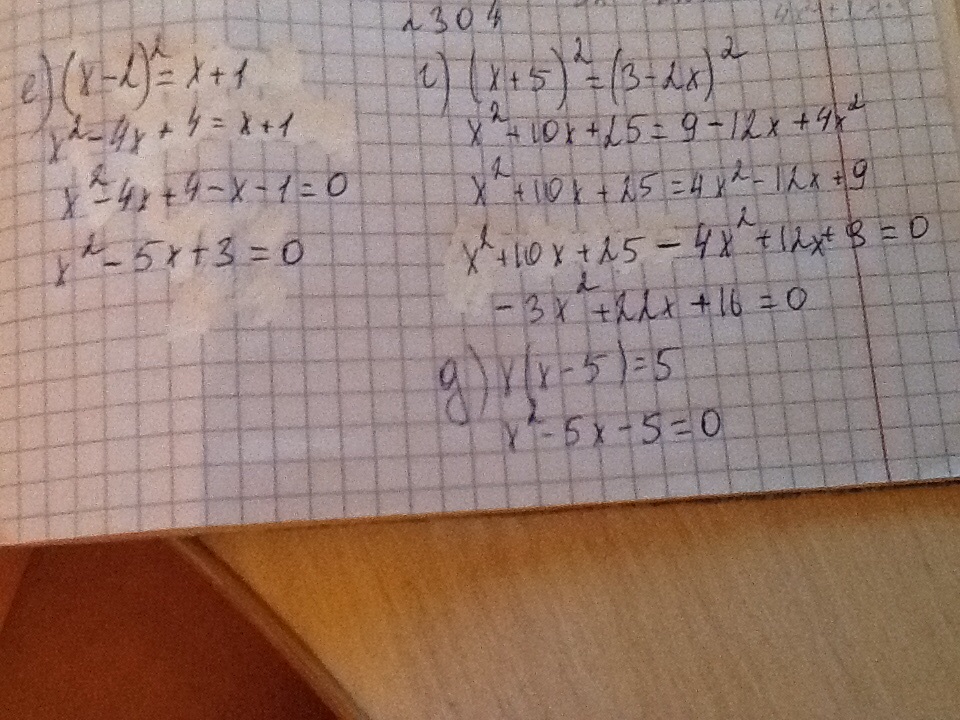 №304
е) (x-2)² = x+1
x²-4x+4 = x+1
x²-4x+4-x-1=0
x²-5x+3=0
г) (x+5)² = (3-2x)²
x²+10x+25=9-12x+4x²
x²+10x+25=4x²-12x+9
x²+10x+25-4x²+12x+9=0
-3x²+22x+16=0
д) x(x-5)=5
x²-5x-5=0